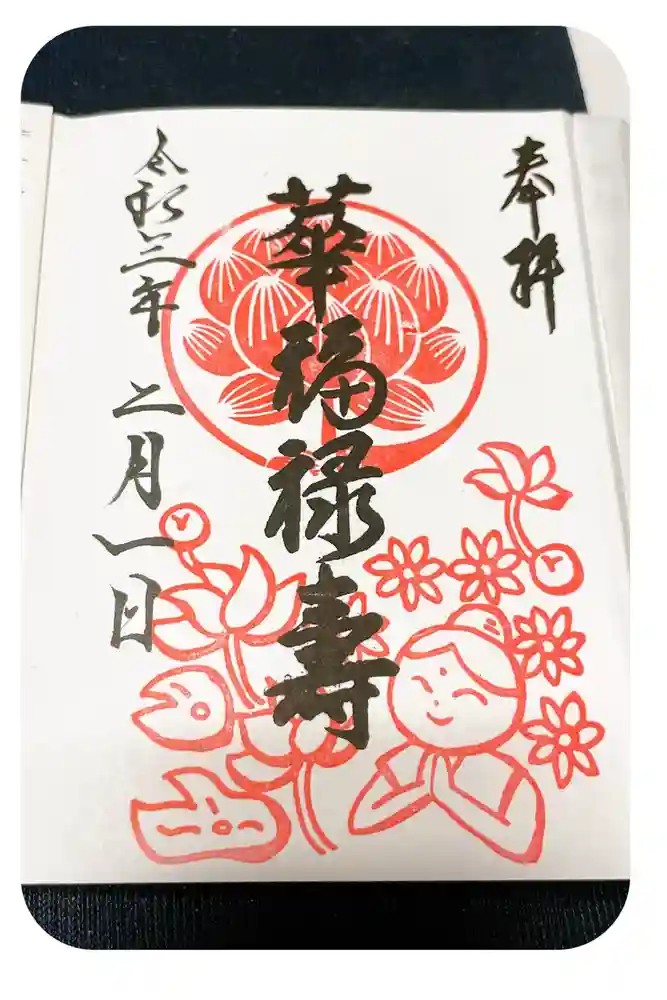 奉拝
華福禄寿
令和三年 二月一日